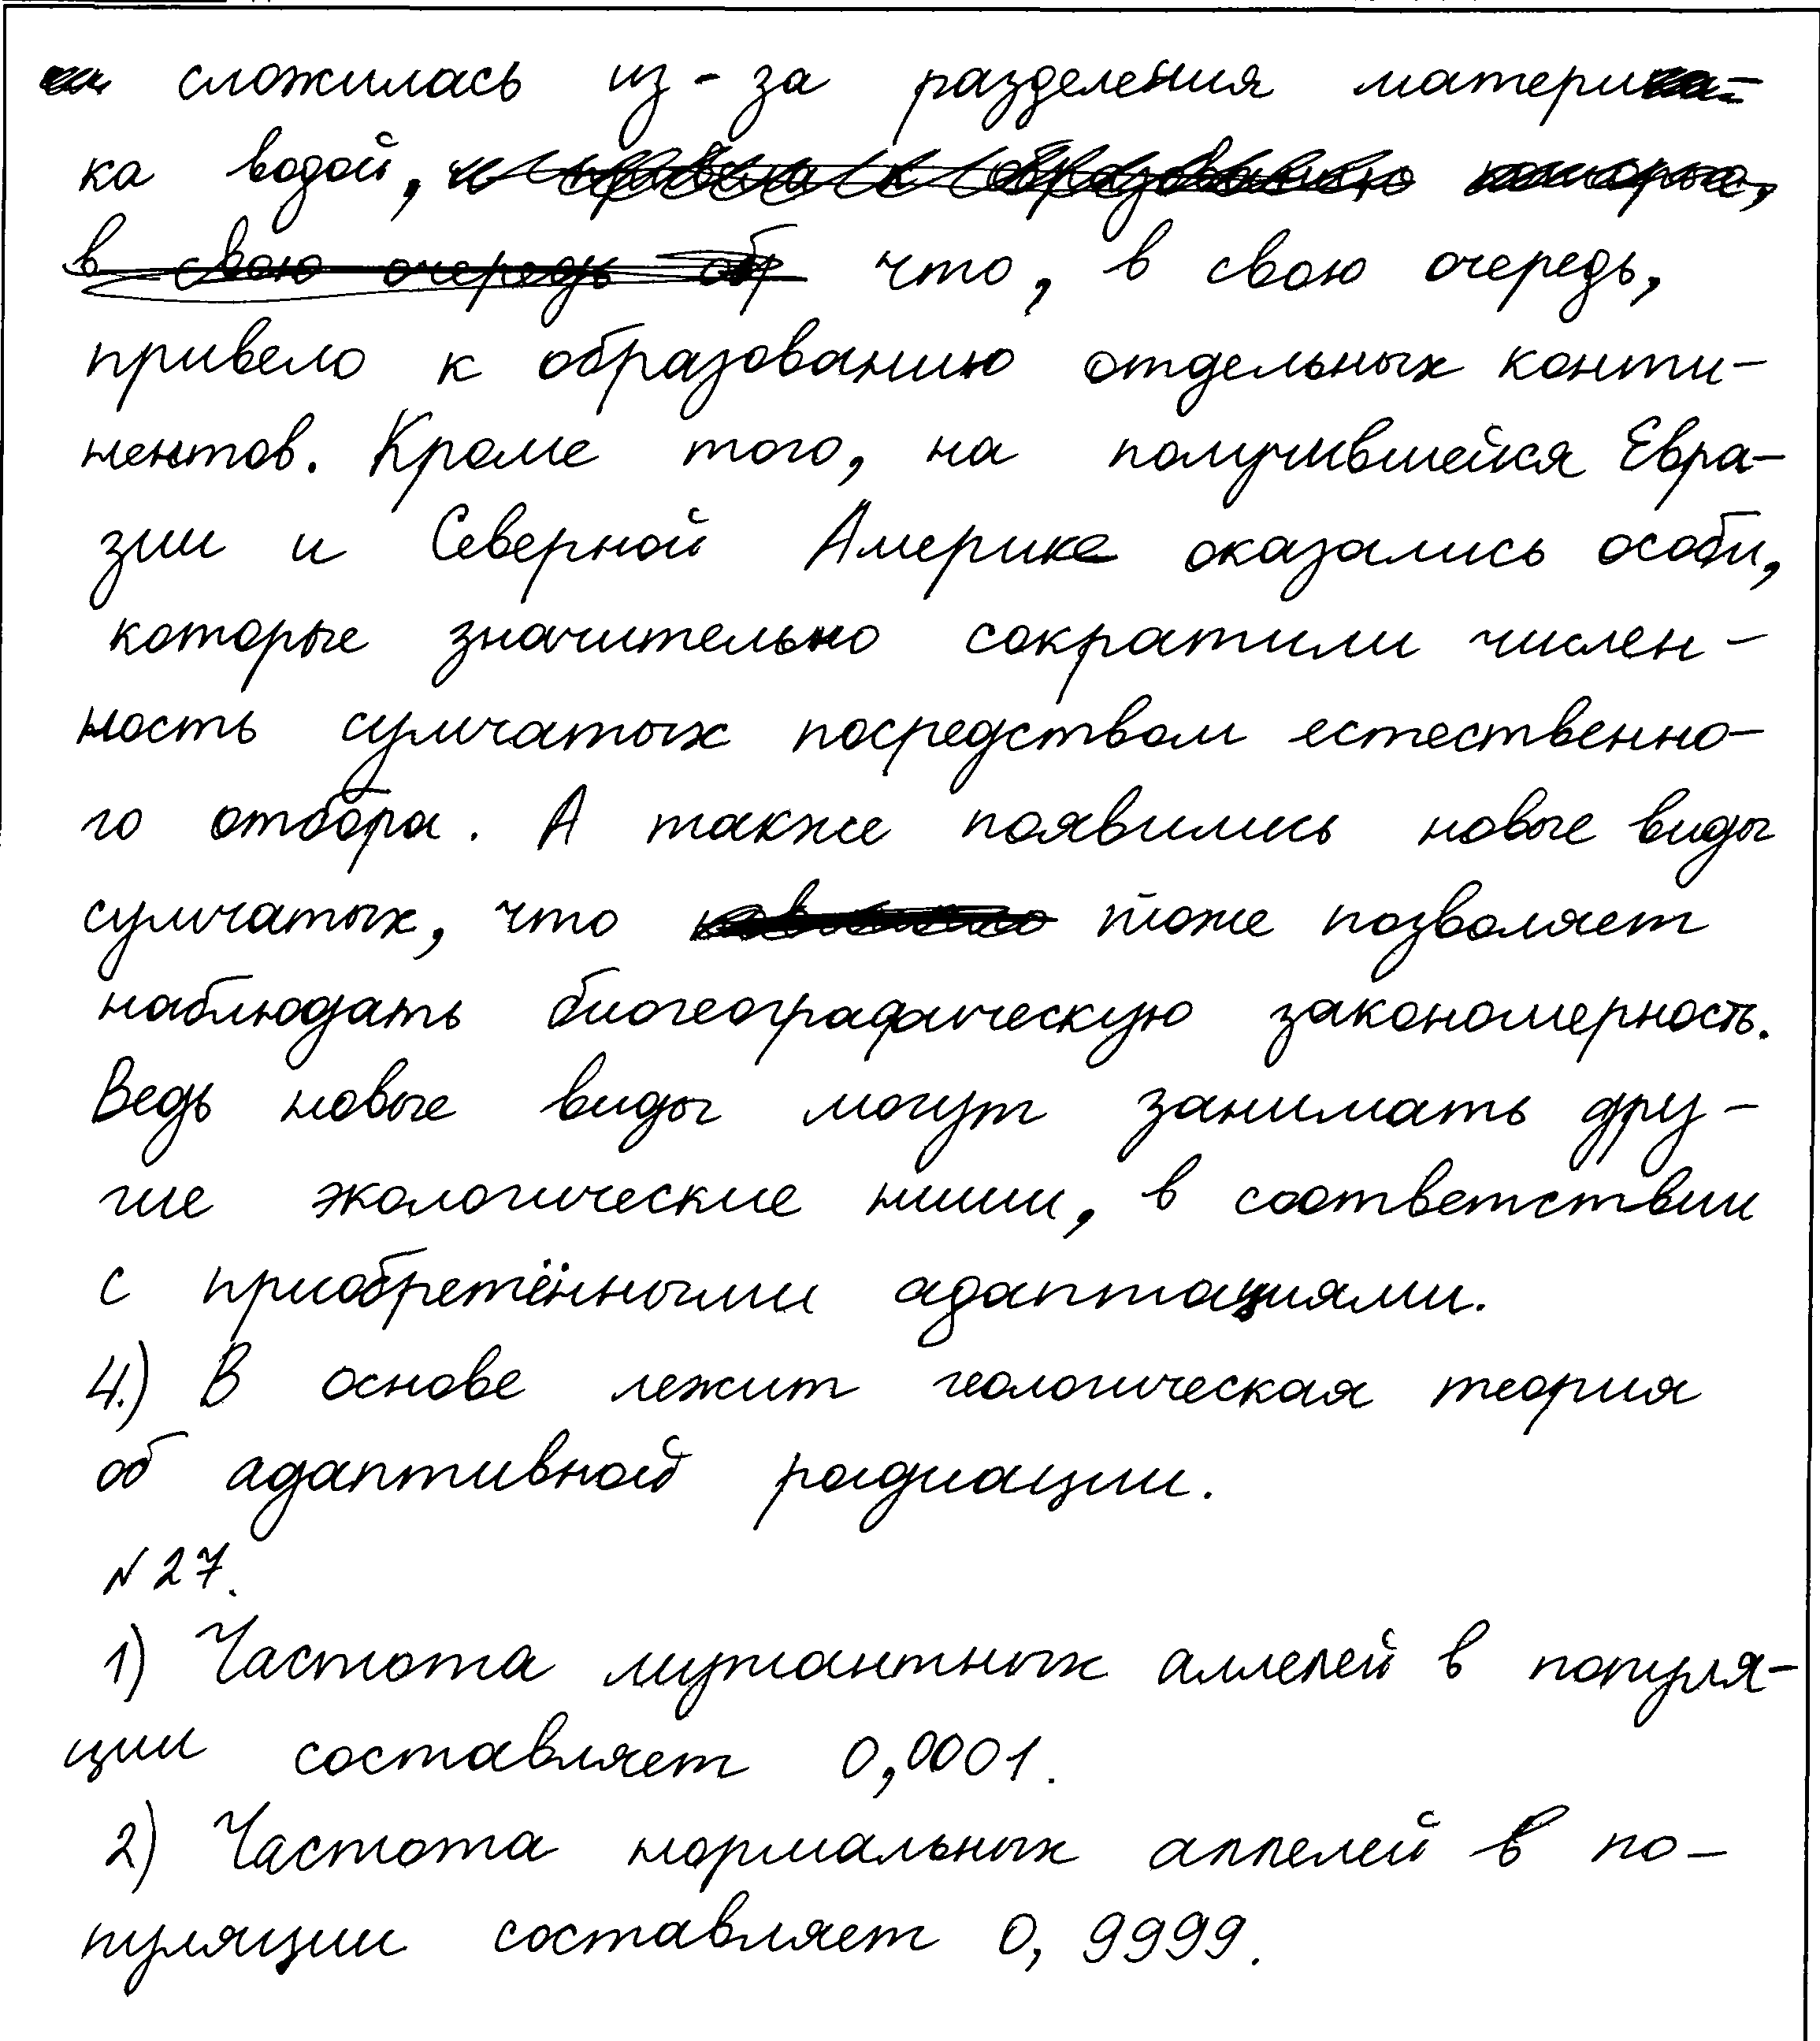 сложилась из-за разделения матери-
ка водой,
что, в свою очередь,
привело к образованию отдельных конти-
нентов. Кроме того, на получившейся Евра-
зии и Северной Америке оказались особи,
которые значительно сократили числен-
ность сумчатых посредством естественно-
го отбора. А также появились новые виды
сумчатых, что тоже позволяет
наблюдать биогеографическую закономерность.
Ведь новые виды могут занимать дру-
гие экологические ниши, в соответствии
с приобретёнными адаптациями.
4.) В основе лежит геологическая теория
об адаптивной радиации.
№27.
1) Частота мутантных аллелей в популя-
ции составляет 0,0001.
2) Частота нормальных аллелей в по-
пуляции составляет 0, 9999.